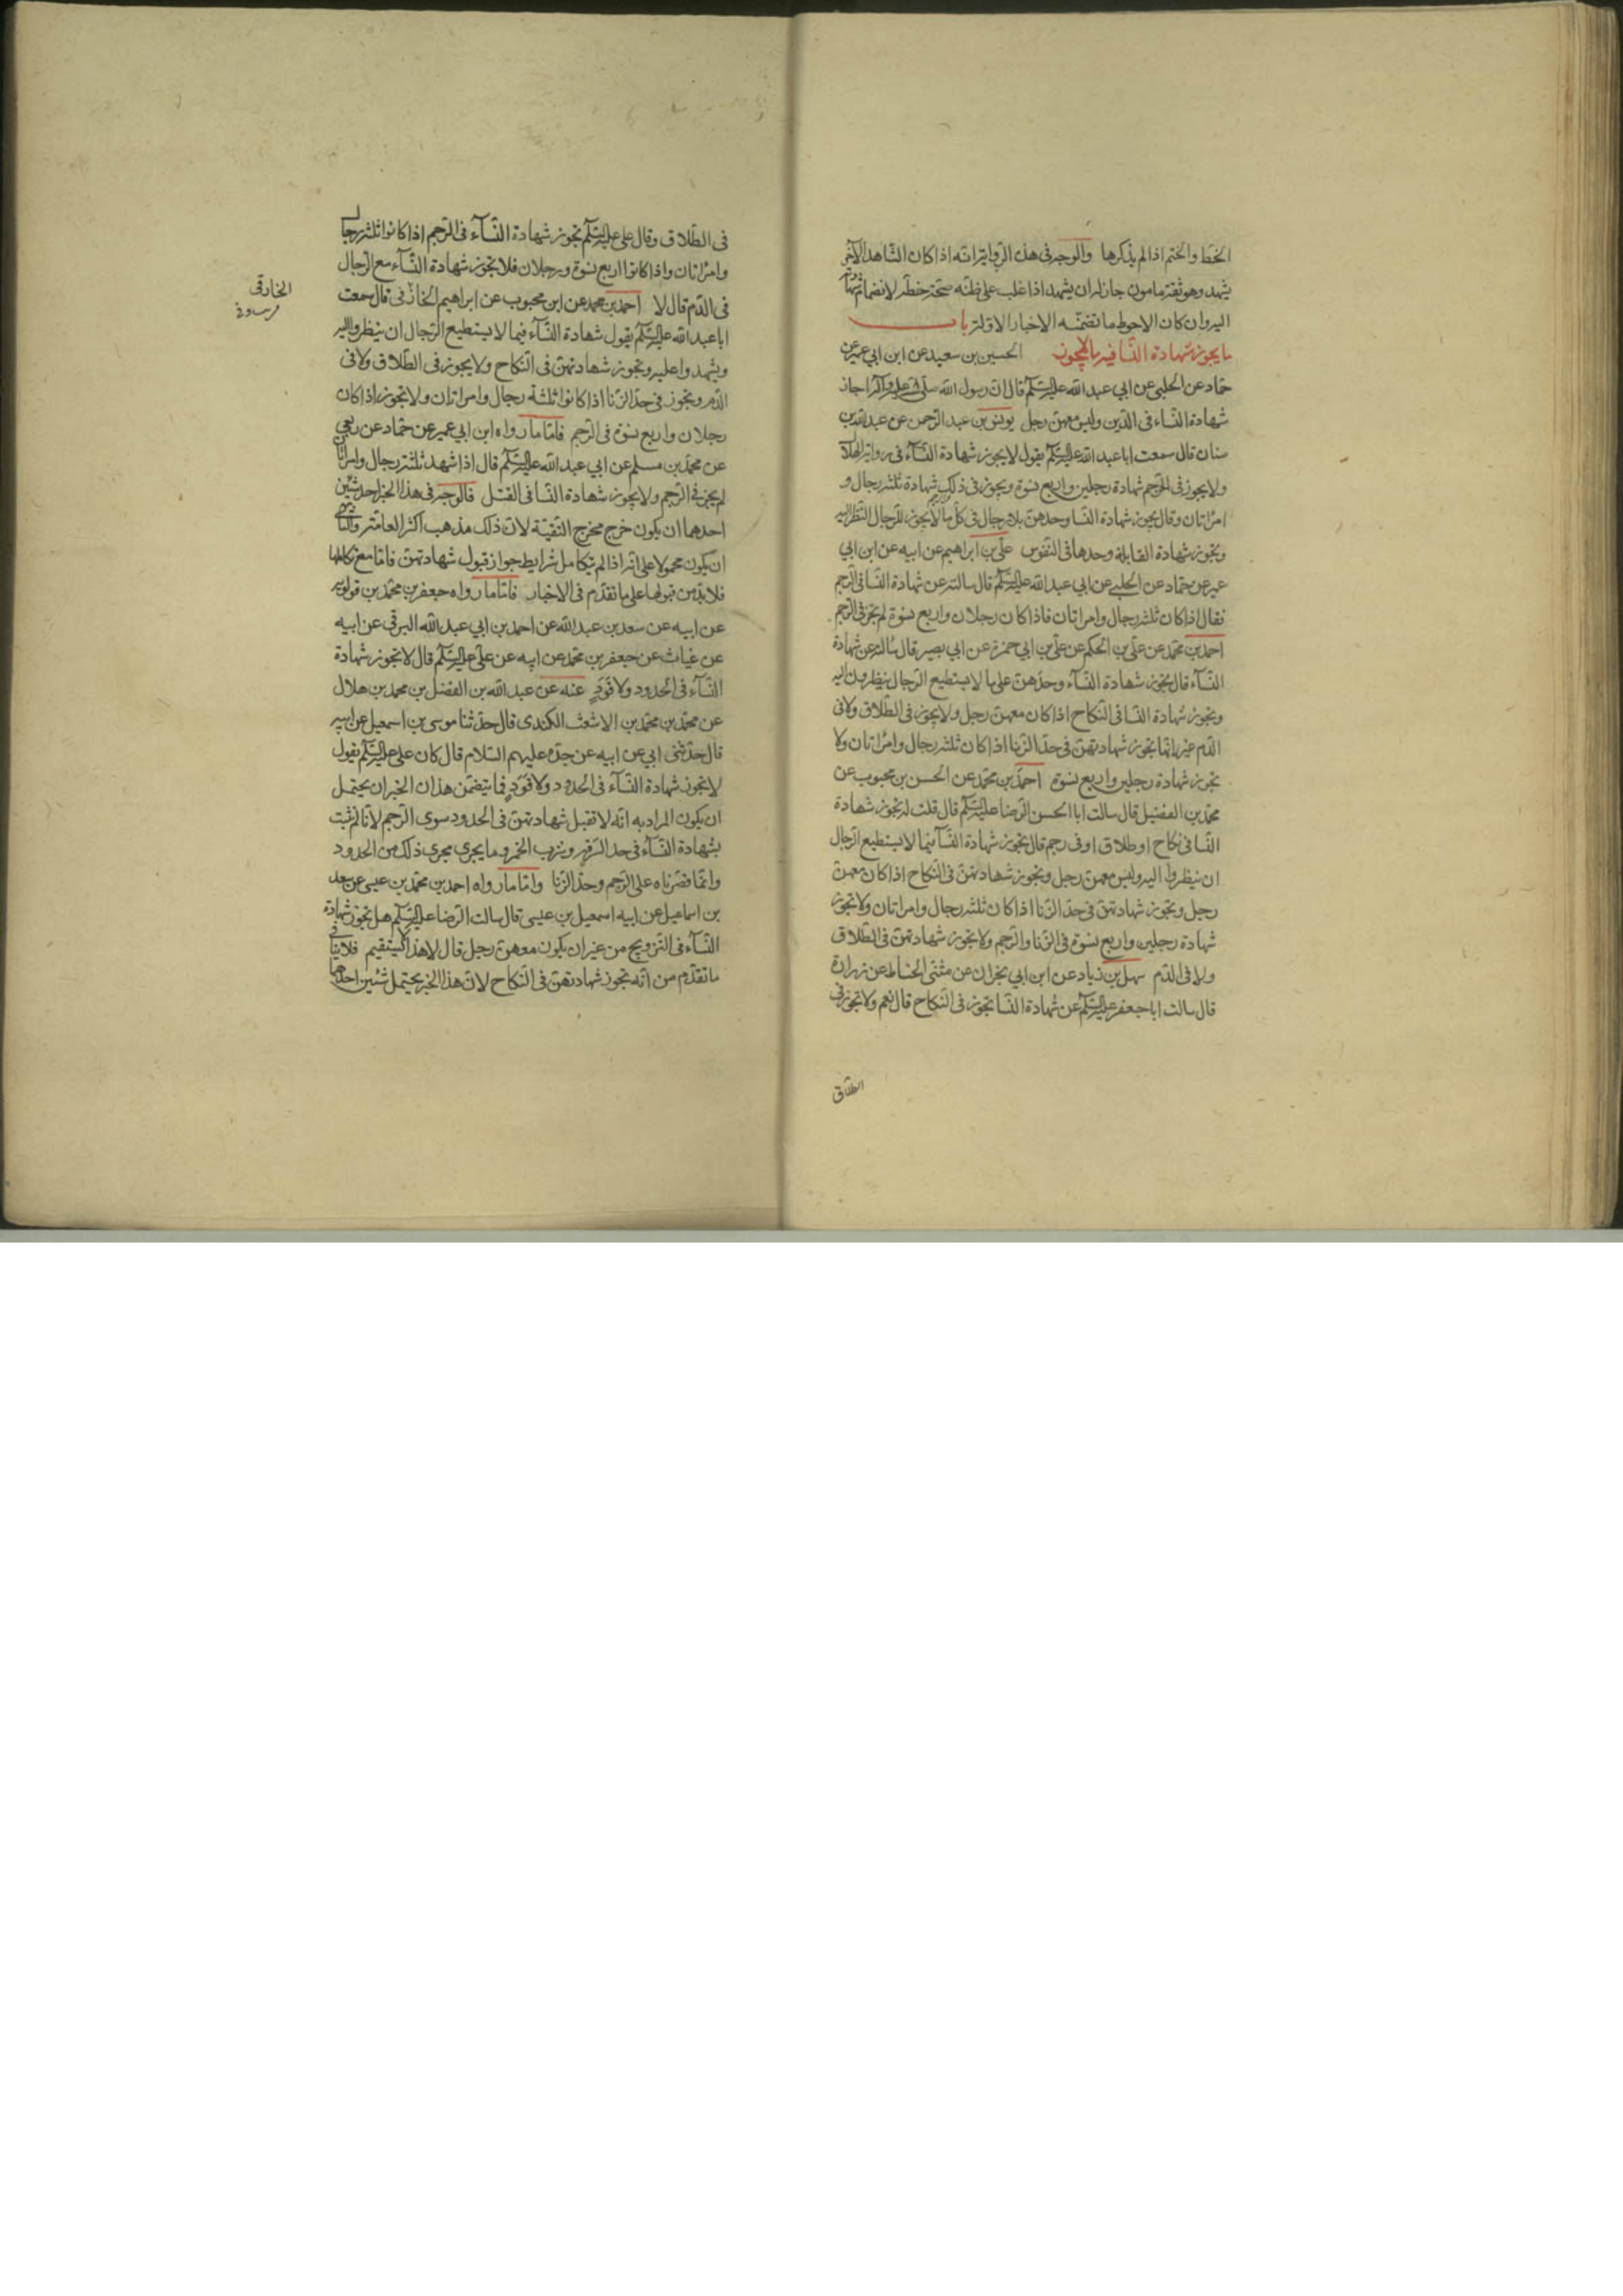 الخط والختم اذا لم يذكرها والوجه فى هذه الرواية انه اذا كان الشاهد الآخر
يشهد وهو ثقة مامون جاز له ان يشهد اذا غلب على ظنه صحة خطه لانضمام شهادته
اليه وان كان الاحوط ما تضمنه الاخبار الاولة باب
ما يجوز شهادة النسا فيه وما لا يجوز الحسين بن سعيد عن ابن ابي عمير عن
حماد عن الحلبي عن ابي عبد الله عليه السلم قال ان رسول الله صلى الله عليه وآله اجاز
شهادة النساء فى الدين وليس معهن رجل يونس بن عبد الرحمن عن عبد الله بن
سنان قال سمعت ابا عبد الله عليه السلم يقول لا يجوز شهادة النسآء فى رواية الهلال
ولا يجوز فى الرجم شهادة رجلين واربع نسوة ويجوز فى ذلك شهادة ثلثة رجال و
امراتان وقال يجوز شهادة النسا وحدهن بلا رجال فى كل ما لا يجوز للرجال النظر اليه
وتجوز شهادة القابلة وحدها فى النفوس على بن ابراهيم عن ابيه عن ابن ابي
عمير عن حماد عن الحلبي عن ابي عبد الله عليه السلم قال سالته عن شهادة النسا فى الرجم
فقال اذا كان ثلثة رجال وامراتان فاذا كان رجلان واربع نسوة لم يجز فى الرجم
احمد بن محمد عن على بن الحكم عن على بن ابي حمزة عن ابي بصير قال سالته عن شهادة
النسآء قال تجوز شهادة النسآء وحدهن على ما لا يستطيع الرجال ينظرون اليه
وتجوز شهادة النسا فى النكاح اذا كان معهن رجل ولا يجوز فى الطلاق ولا فى
الدم غير انها تجوز شهادتهن فى حد الزنا اذا كان ثلثة رجال وامراتان ولا
تجوز شهادة رجلين واربع نسوة احمد بن محمد عن الحسن بن محبوب عن
محمد بن الفضيل قال سالت ابا الحسن الرضا عليه السلم قال قلت له تجوز شهادة
النسا فى نكاح او طلاق او فى رجم قال تجوز شهادة النسآء فيما لا يستطيع الرجال
ان ينظروا اليه وليس معهن رجل وتجوز شهادتهن فى النكاح اذا كان معهن
رجل وتجوز شهادتهن فى حد الزنا اذا كان ثلثة رجال وامراتان ولا تجوز
شهادة رجلين واربع نسوة فى الزنا والرجم ولا يجوز شهادتهن فى الطلاق
ولا فى الدم سهل بن زياد عن ابن ابي نجران عن مثنى الحناط عن زرارة
قال سالت ابا جعفر عليه السلم عن شهادة النسا تجوز فى النكاح قال نعم ولا تجوز فى
الطلاق
فى الطلاق وقال على عليه السلم تجوز شهادة النسآء فى الرجم اذا كانوا ثلثة رجال
وامراتان واذا كانوا اربع نسوة ورجلان فلا يجوز شهادة النسآء مع الرجال
فى الدم قال لا احمد بن محمد عن ابن محبوب عن ابراهيم الخارقى قال سمعت
الخارقى
ابا عبد الله عليه السلم يقول شهادة النسآء فيما لا يستطيع الرجال ان ينظروا اليه
ويشهدوا عليه وتجوز شهادتهن فى النكاح ولا يجوز فى الطلاق ولا فى
الدم وتجوز فى حد الزنا اذا كانوا ثلثة رجال وامراتان ولا تجوز اذا كان
رجلان واربع نسوة فى الرجم فاما ما رواه ابن ابي عمير عن حماد عن ربعي
عن محمد بن مسلم عن ابي عبد الله عليه السلم قال اذا شهد ثلثة رجال وامراتان
لم يجز فى الرجم ولا يجوز شهادة النسا فى القتل فالوجه فى هذا الخبر احد شيئين
احدهما ان يكون خرج مخرج التقية لان ذلك مذهب اكثر العامة والثانى
ان يكون محمولا على انه اذا لم يتكامل شرايط جواز قبول شهادتهن فاما مع تكاملها
فلا بد من قبولها على ما تقدم فى الاخبار فاما ما رواه جعفر بن محمد بن قولويه
عن ابيه عن سعد بن عبد الله عن احمد بن ابي عبد الله البرقى عن ابيه
عن غياث عن جعفر بن محمد عن ابيه عن على عليه السلم قال لا تجوز شهادة
النسآء فى الحدود ولا قود عنه عن عبد الله بن الفضل بن محمد بن هلال
عن محمد بن محمد بن الاشعث الكندى قال حدثنا موسى بن اسمعيل عن ابيه
قال حدثنى ابي عن ابيه عن جده عليهم السلام قال كان على عليه السلم يقول
لا يجوز شهادة النسآء فى الحدود ولا قود فما يتضمن هذان الخبران يحتمل
ان يكون المراد به انه لا تقبل شهادتهن فى الحدود سوى الرجم لانا لم نثبت
بشهادة النسآء فى حد السرقة وشرب الخمر وما يجرى مجرى ذلك من الحدود
وانما قصرناه على الرجم وحد الزنا واما ما رواه احمد بن محمد بن عيسى عن سعد
بن اسماعيل عن ابيه اسمعيل بن عيسى قال سالت الرضا عليه السلم هل تجوز شهادة
النسآء فى التزويج من غير ان يكون معهن رجل قال لا هذا لا يستقيم فلا ينافى
ما تقدم من انه تجوز شهادتهن فى النكاح لان هذا الخبر يحتمل شيئين احدهما